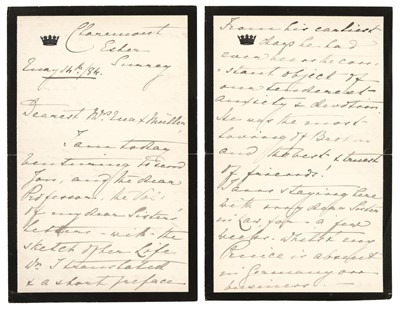 Claremont
Esher
Surrey
May 14th/84.
Dearest Mrs Max Müller,
I am today
venturing to send
you, and the dear
Professor, the
of my dear Sister's
letters – with the
sketch of her Life
I translated
& a short preface
From his earliest
days he had
ever been the con
stant object of
our tenderest
anxiety & devotion.
He was the most
loving of
and the best & truest
of friends!
I am staying here
with my dear Sister
in Law for a few
weeks, whilst my
Prince is absent
in Germany on
business.